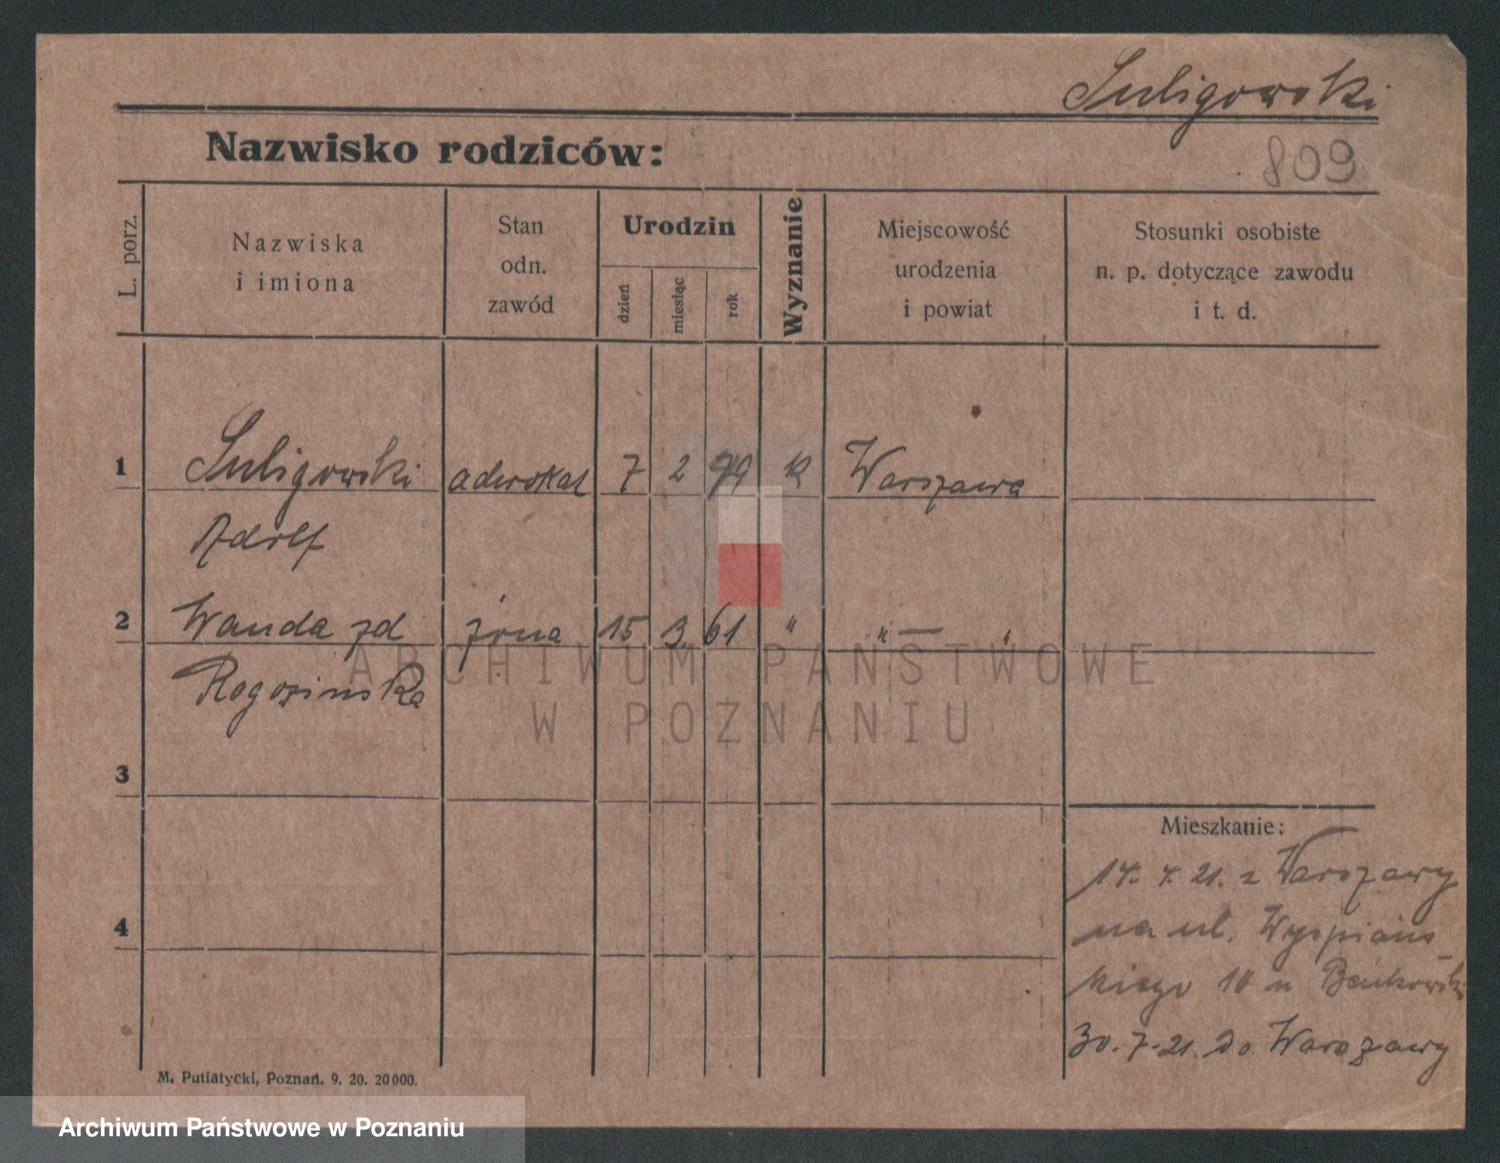 Suligowski
Nazwisko rodziców:
809
L. porz.
Nazwiska
i imiona
Stan
odn.
zawód
Urodzin
dzień
miesiąc
rok
Wyznanie
Miejscowość
urodzenia
i powiat
Stosunki osobiste
n. p. dotyczące zawodu
i t. d.
1 Suligowski adwokat 7 2 Warszawa
Adolf
2 Wanda zd żona 15 3 61 " " — "
Rogozinska
ARCHIWUM PAŃSTWOWE
W POZNANIU
3
Mieszkanie:
21. z Warszawy
4
na ul. Wyspiańs
kiego 10 u
30.7.21. do Warszawy
M. Putiatycki, Poznań. 9. 20. 20000.
Archiwum Państwowe w Poznaniu